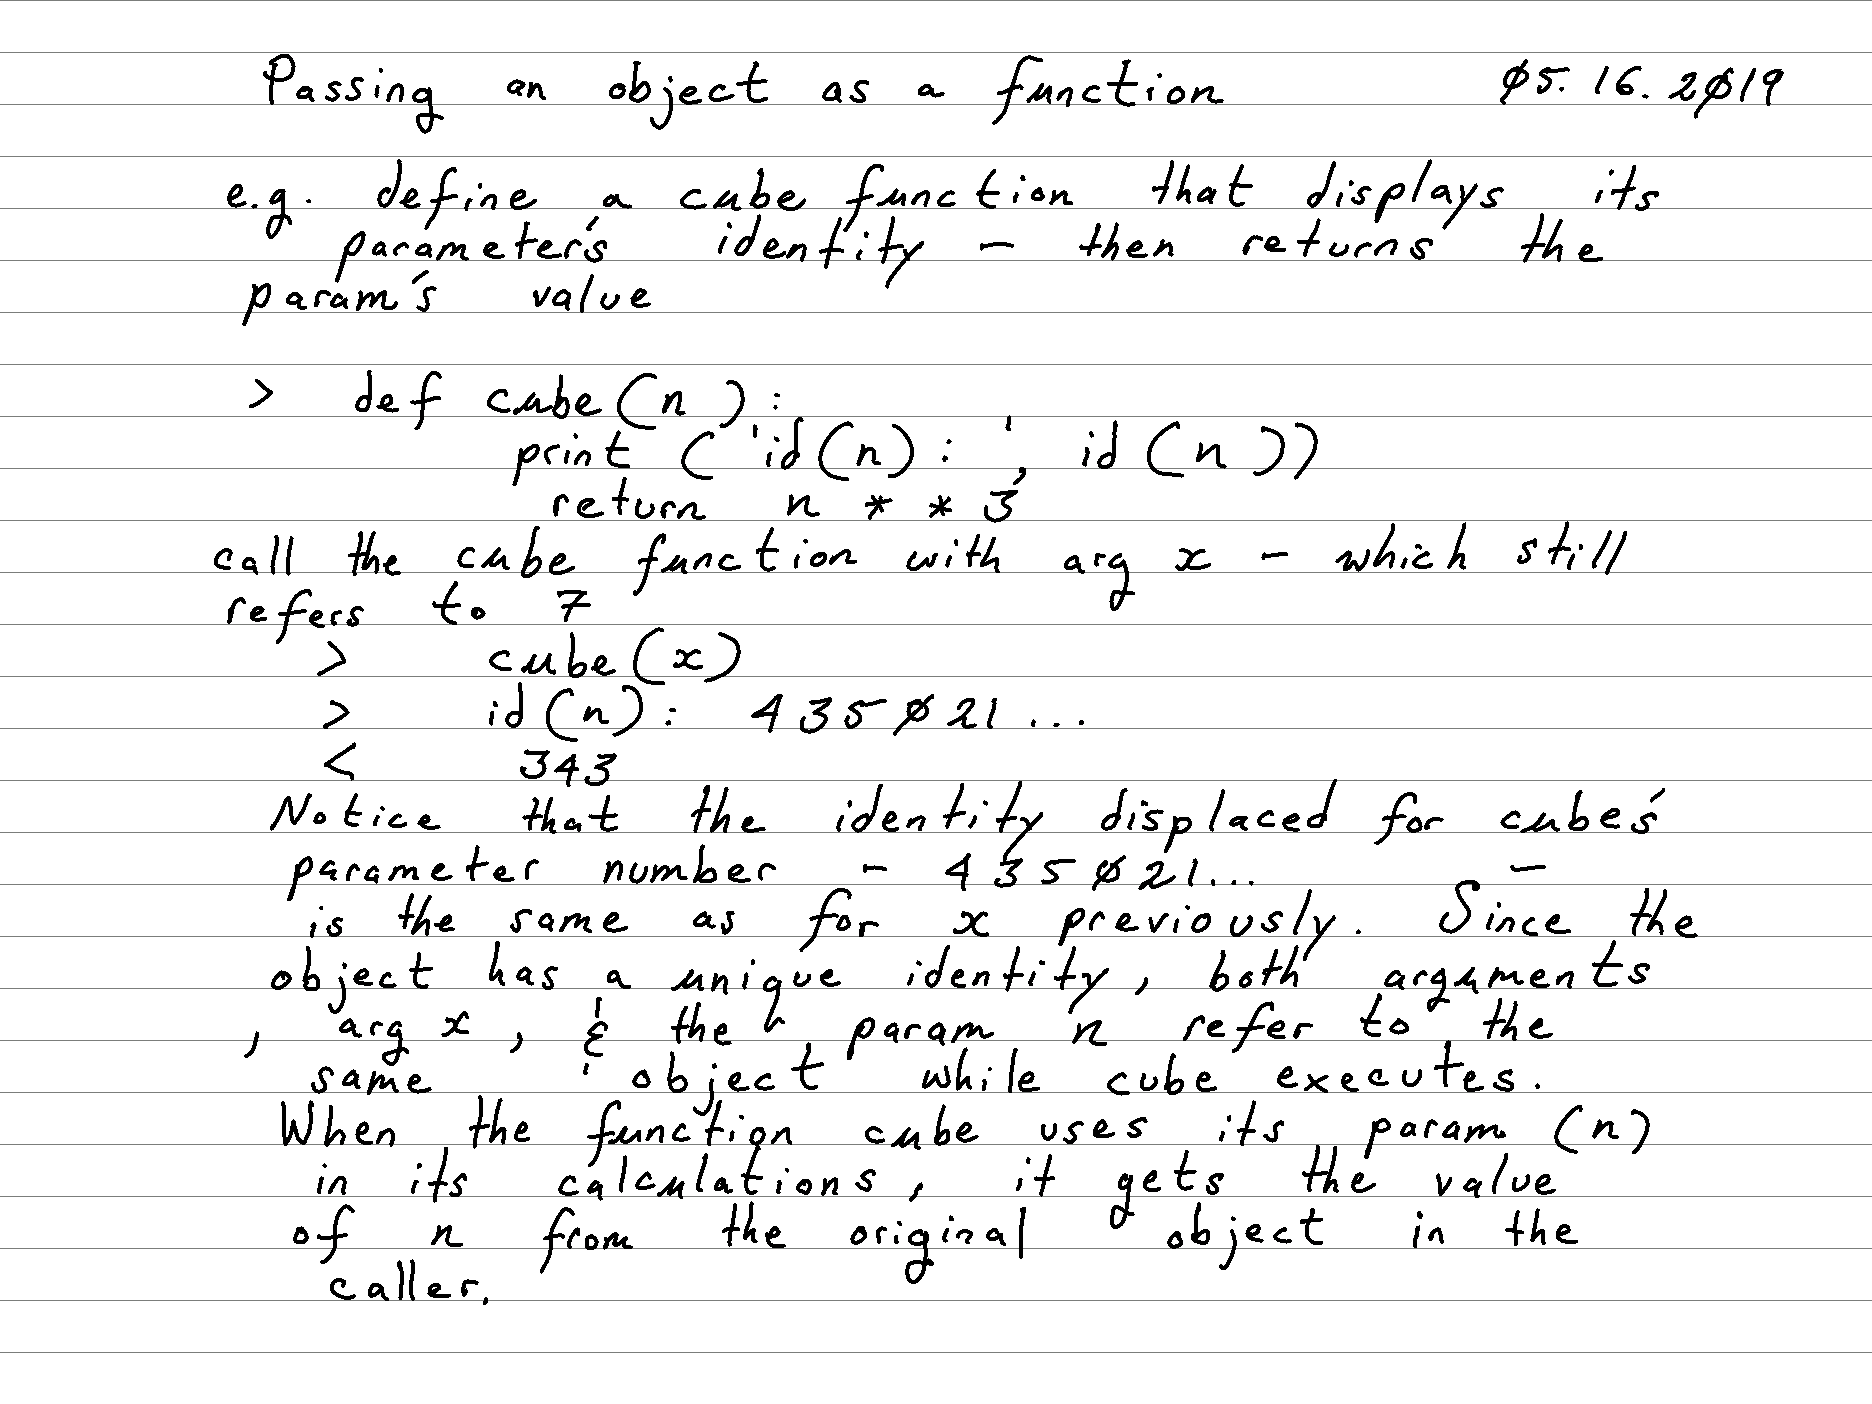 Passing an object as a function 05.16.2019
e.g. define a cube function that displays its
parameter's identity - then returns the
param's value
> def cube(n):
print ('id(n): ', id(n))
return n * * 3
call the cube function with arg x - which still
refers to 7
> cube(x)
> id(n): 435021...
< 343
Notice that the identity displaced for cube's
parameter number - 435021... -
is the same as for x previously. Since the
object has a unique identity, both arguments
, arg x, & the param n refer to the
same object while cube executes.
When the function cube uses its param (n)
in its calculations, it gets the value
of n from the original object in the
caller.